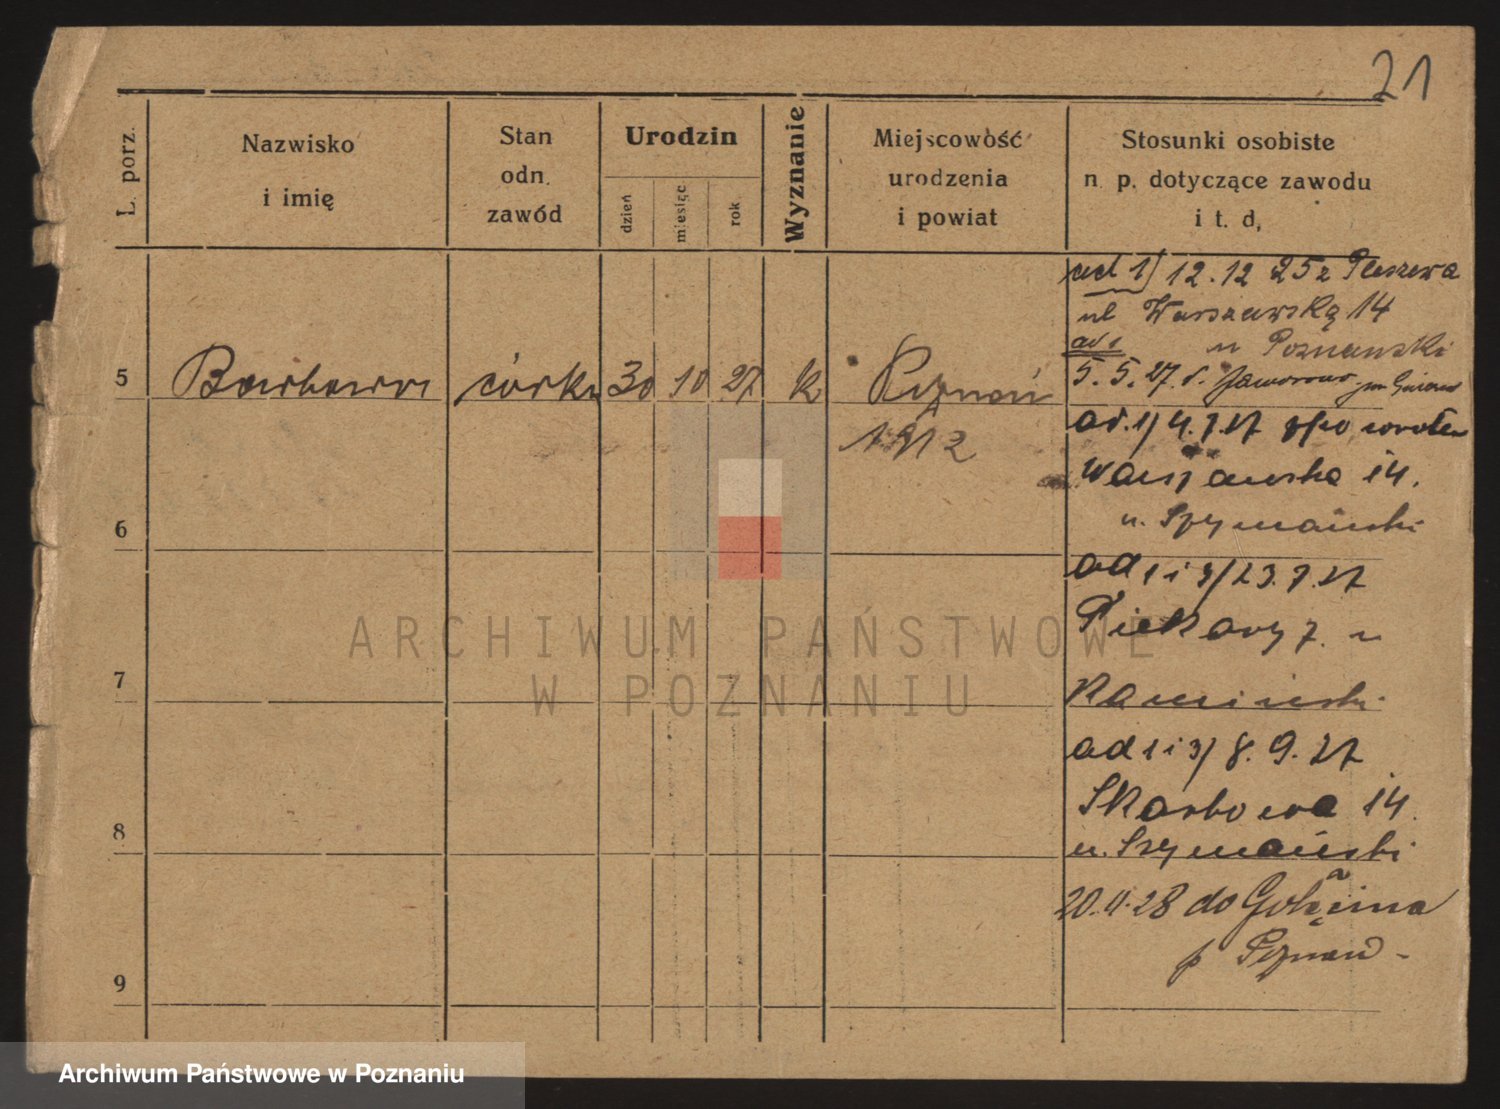 21
L. porz.
Nazwisko
i imię
Stan
odn.
zawód
Urodzin
dzień
miesiąc
rok
Wyznanie
Miejscowość
urodzenia
i powiat
Stosunki osobiste
n. p. dotyczące zawodu
i t. d.
ad 1) 12.12 25 z Pleszewa
ul Warszawską 14
u Poznański
5.5.27.
5 Barbara córka 30 10 27 k Poznań
1912
ad. 1) 4.7.27 powrotem
Warszawska 14.
u. Szymański
6
ad 1 i 3) 23.7.27
Piekary 7. u
Kamiński
7
ad 1 i 3) 8.9.27
Skarbowa 14.
u. Szymański
8
20.11.28 do Golęcina
p Poznań -
9
ARCHIWUM PAŃSTWOWE
W POZNANIU
Archiwum Państwowe w Poznaniu